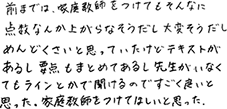 前までは、家庭教師をつけてもそんなに
点数なんか上がらなそうだし大変そうだし
めんどくさいと思っていたけどテキストが
あるし要点もまとめてあるし先生がいなく
てもラインとかで聞けるのですごく良いと
思った。家庭教師をつけてほしいと思った.